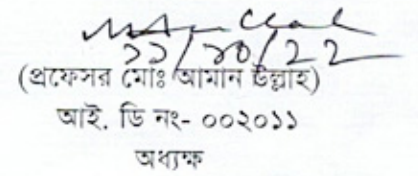 ১১/১০/২২
(প্রফেসর মোঃ আমান উল্লাহ)
আই. ডি নং- ০০২০১১
অধ্যক্ষ